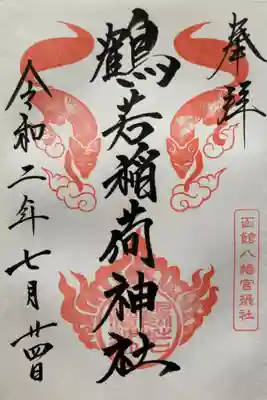 奉拝
函館八幡宮
鶴若稲荷神社
令和二年七月廿四日